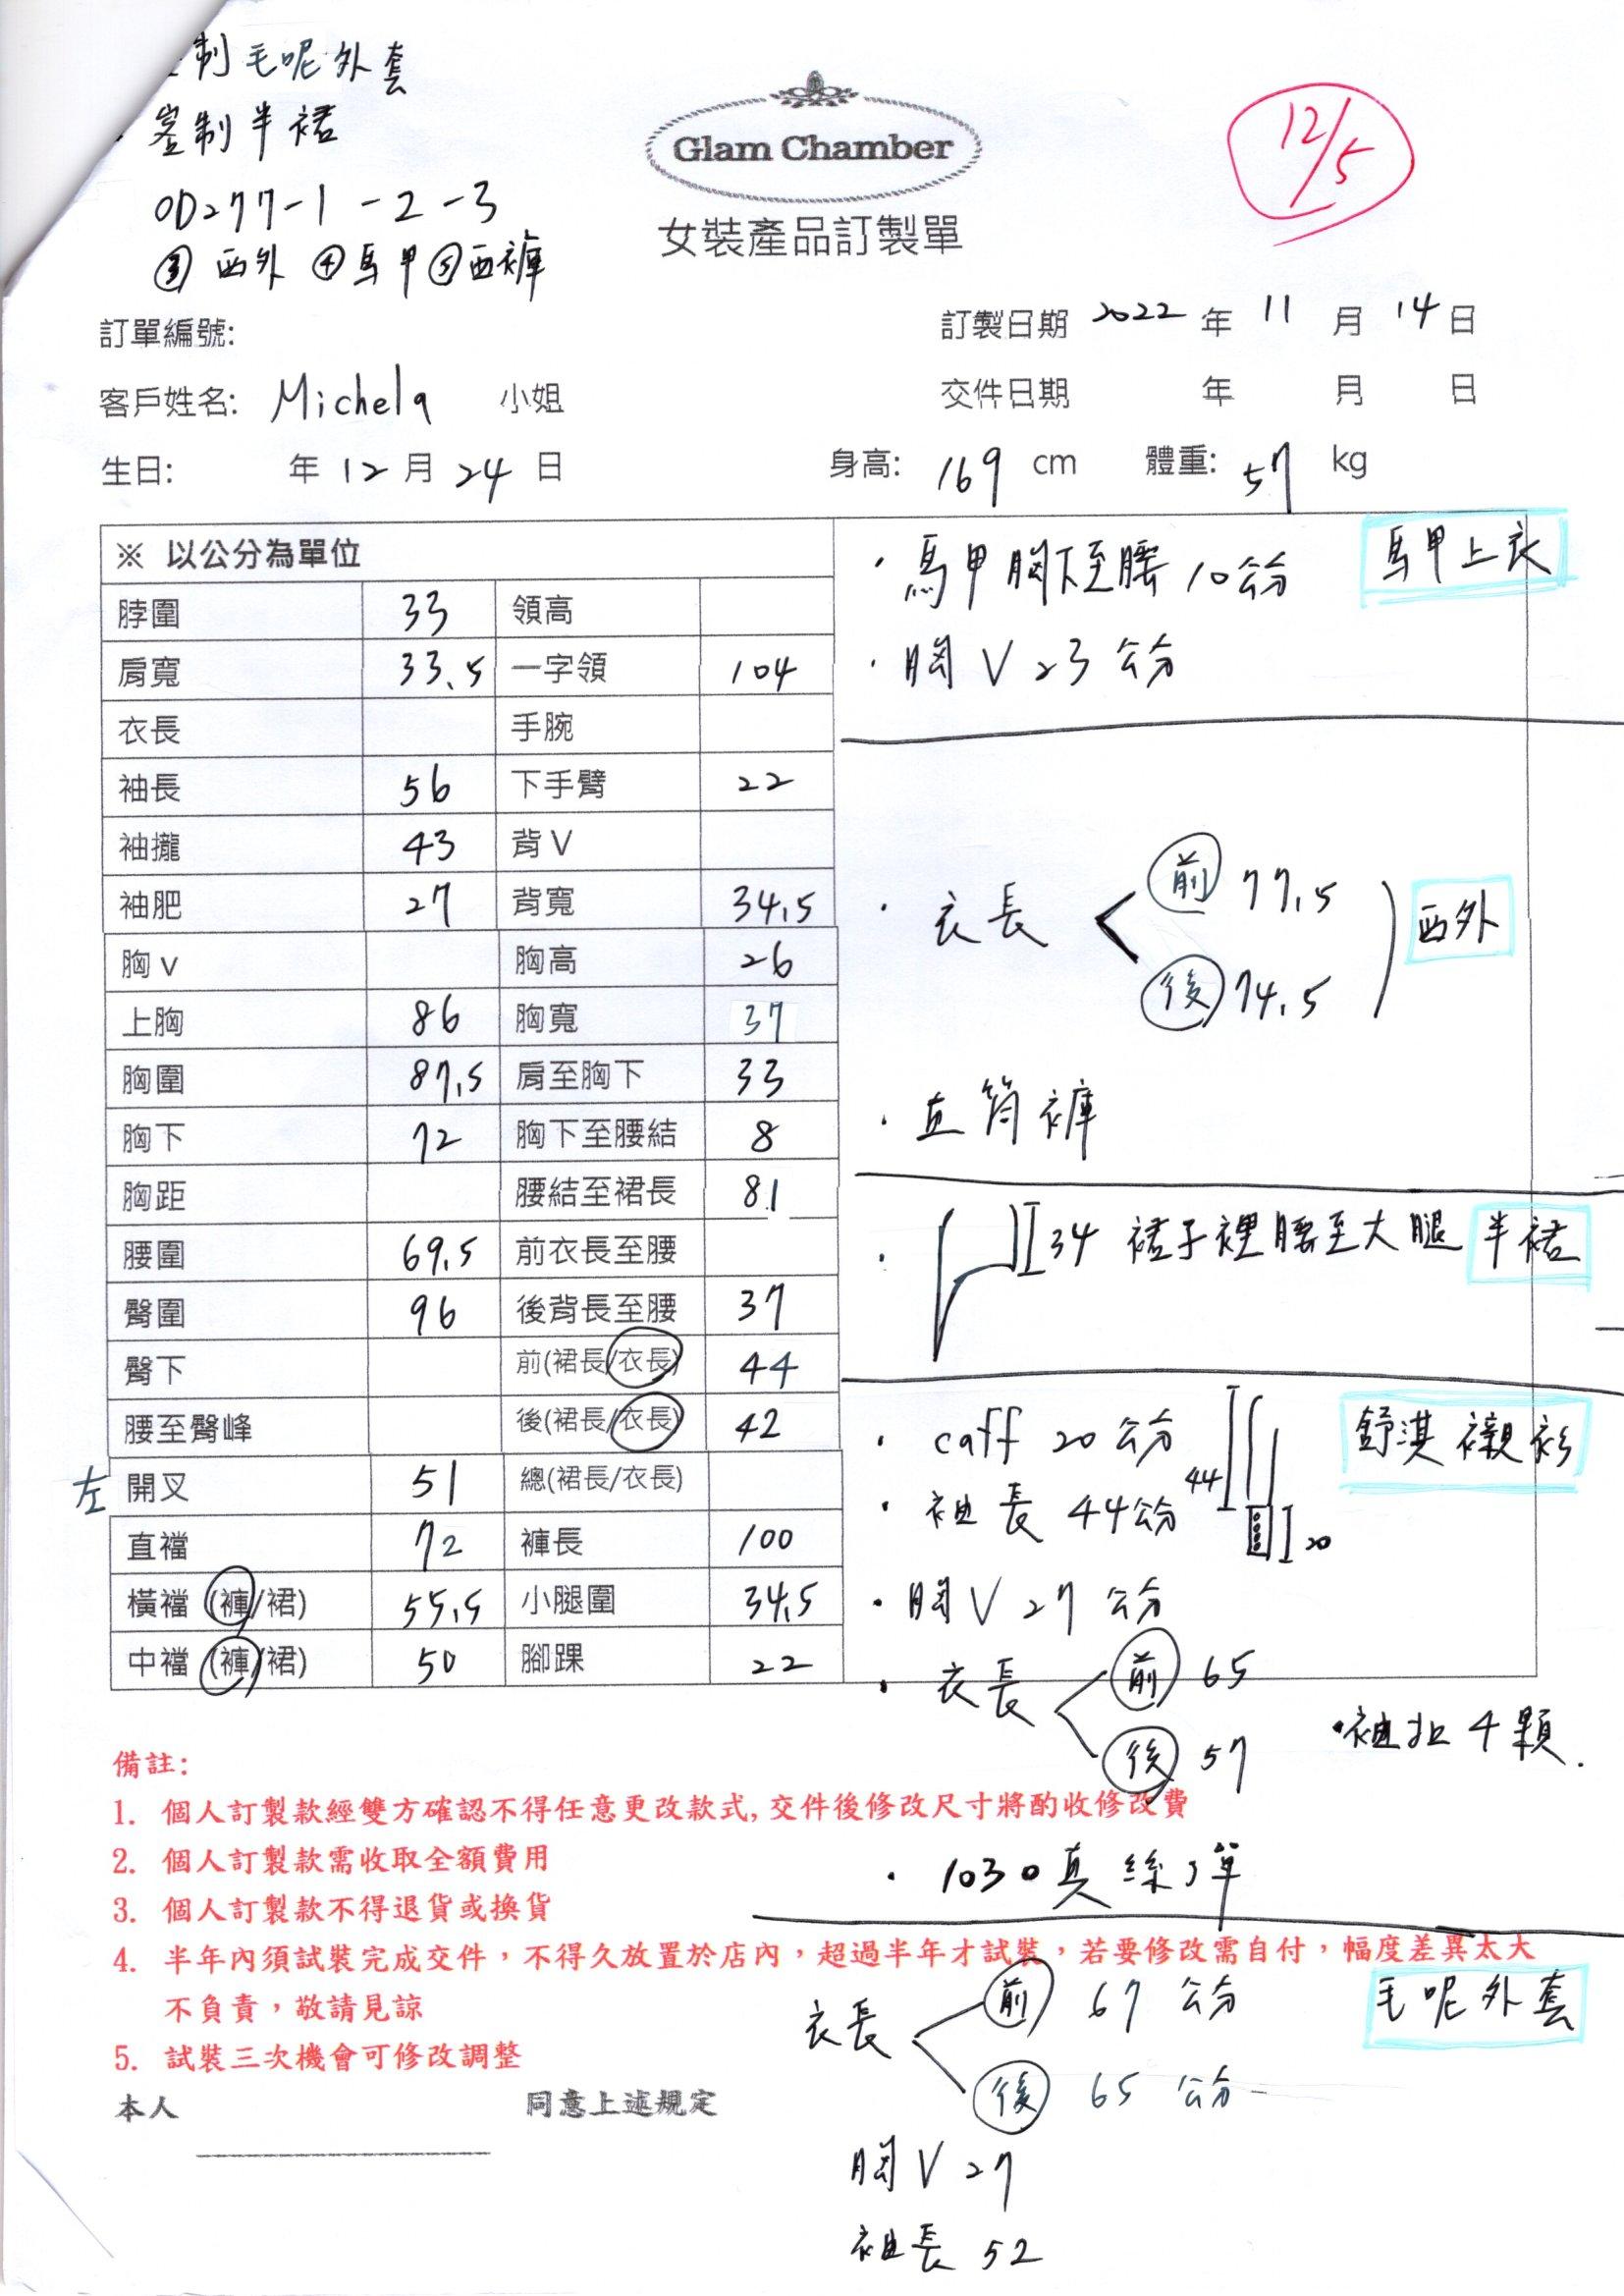 制毛呢外套
制半裙
OD277-1-2-3
③西外 ④馬甲 ⑤西褲
Glam Chamber
女裝產品訂製單
12/5
訂單編號:
訂製日期 2022 年 11 月 14 日
客戶姓名: Michela 小姐
交件日期 年 月 日
生日: 年 12 月 24 日
身高: 169 cm 體重: 57 kg
※ 以公分為單位
脖圍 33 領高
肩寬 33.5 一字領 104
衣長 手腕
袖長 56 下手臂 22
袖攏 43 背V
袖肥 27 背寬 34.5
胸v 胸高 26
上胸 86 胸寬 37
胸圍 87.5 肩至胸下 33
胸下 72 胸下至腰結 8
胸距 腰結至裙長 81
腰圍 69.5 前衣長至腰
臀圍 96 後背長至腰 37
臀下 前(裙長/衣長) 44
腰至臀峰 後(裙長/衣長) 42
左 開叉 51 總(裙長/衣長)
直襠 72 褲長 100
橫襠 (褲/裙) 55.5 小腿圍 34.5
中襠 (褲/裙) 50 腳踝 22
・馬甲胸下至腰10公分 馬甲上衣
・胸V 23公分
・衣長 前 77.5 西外
後 74.5
・直筒褲
・34 裙子裡腰至大腿 半裙
・caff 20公分 舒淇襯衫
・袖長 44公分 44
20
・胸V 27公分
・衣長 前 65
後 57
・袖扣4顆.
・1030真絲彈
衣長 前 67公分 毛呢外套
後 65公分
胸V 27
袖長 52
備註:
1. 個人訂製款經雙方確認不得任意更改款式,交件後修改尺寸將酌收修改費
2. 個人訂製款需收取全額費用
3. 個人訂製款不得退貨或換貨
4. 半年內須試裝完成交件，不得久放置於店內，超過半年才試裝，若要修改需自付，幅度差異太大
不負責，敬請見諒
5. 試裝三次機會可修改調整
本人 同意上述規定